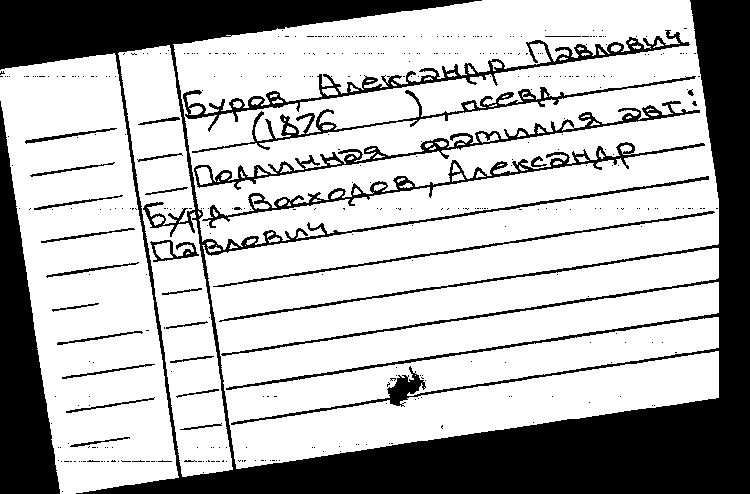 Буров, Александр Павлович
(1876 ), псевд.
Подлинная фамилия авт.:
Бурд-Восходов, Александр
Павлович.